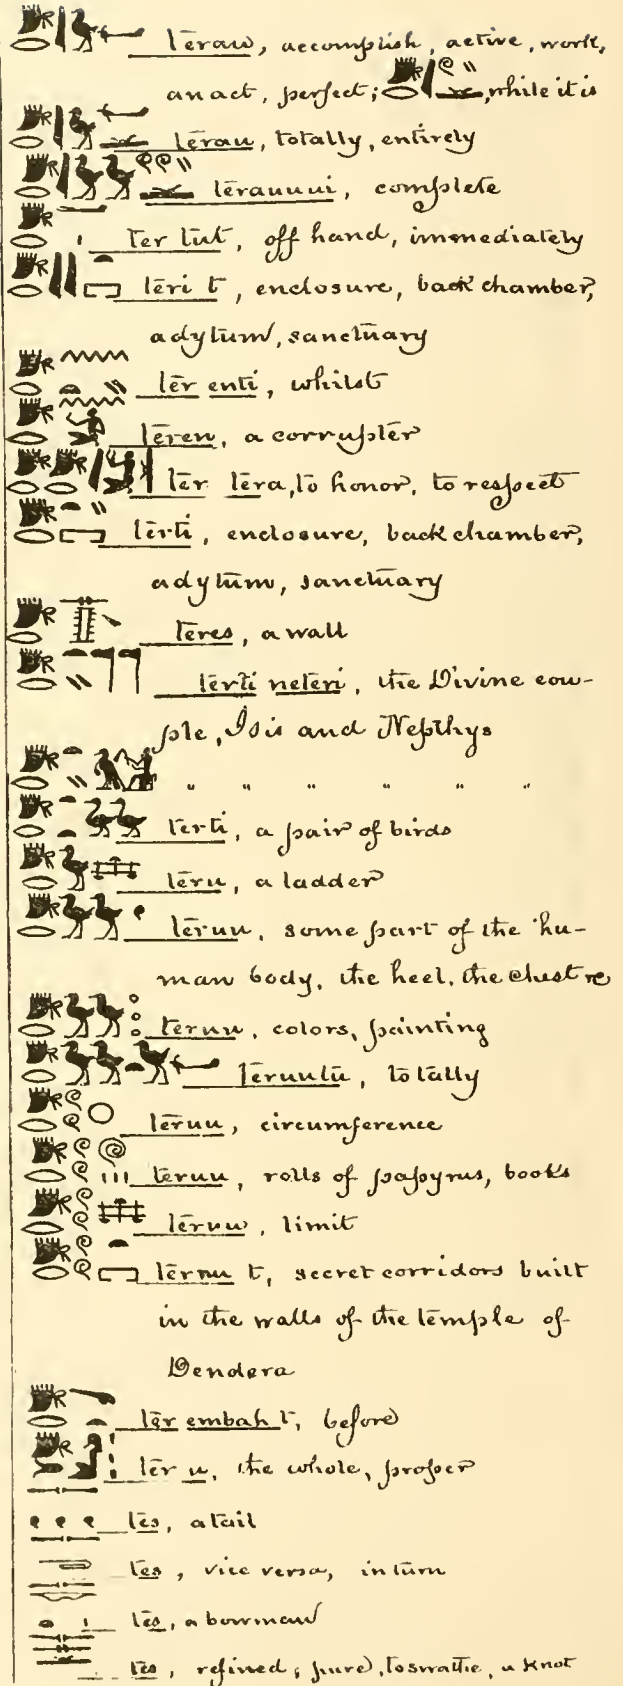 tērau, accomplish, active, work,
an act, perfect; , while it is
tērau, totally, entirely
tērauuui, complete
ter tut, off hand, immediately
tēri t, enclosure, back chamber,
adytum, sanctuary
tēr enti, whilst
tēren, a corrupter
tēr tēra, to honor, to respect
tērti, enclosure, back chamber,
adytum, sanctuary
tēres, a wall
tērti neteri, the Divine cou-
ple, Isis and Nepthys
" " " " " "
terti, a pair of birds
tēru, a ladder
tēruu, some part of the hu-
man body, the heel, the chest
teruu, colors, painting
tēruutu, totally
tēruu, circumference
teruu, rolls of papyrus, books
tēruu, limit
tēruu t, secret corridors built
in the walls of the temple of
Dendera
tēr embah t, before
tēr u, the whole, proper
tēs, a tail
tes, vice versa, in turn
tēs, a bowman
tēs, refined, pure, to swathe, a knot